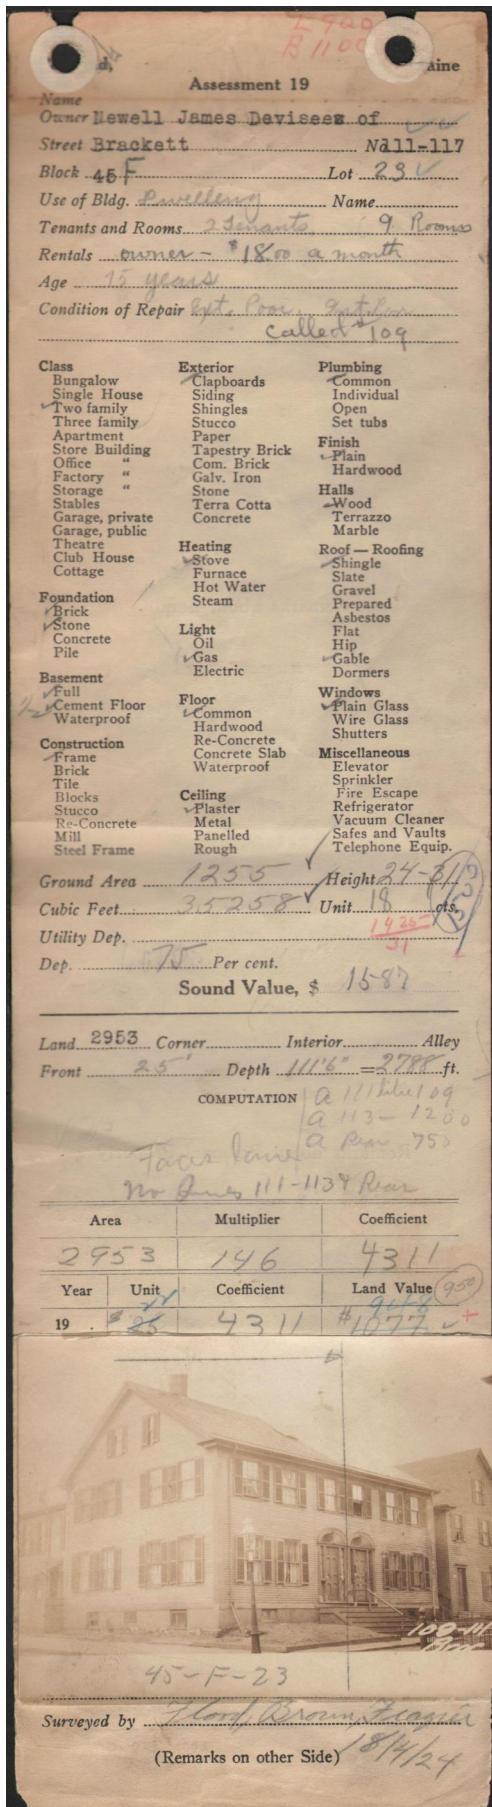 L 900
B 1100
d,
aine
Assessment 19
Name
Owner Newell James Devisees of
Street Brackett No 111-117
Block 45 F Lot 23
Use of Bldg. Dwelling Name
Tenants and Rooms 2 Tenants 9 Rooms
Rentals owner - $18.00 a month
Age 75 years
Condition of Repair Ext. Poor
called #109
Class
Bungalow
Single House
Two family
Three family
Apartment
Store Building
Office "
Factory "
Storage "
Stables
Garage, private
Garage, public
Theatre
Club House
Cottage
Foundation
Brick
Stone
Concrete
Pile
Basement
Full
1/2 Cement Floor
Waterproof
Construction
Frame
Brick
Tile
Blocks
Stucco
Re-Concrete
Mill
Steel Frame
Exterior
Clapboards
Siding
Shingles
Stucco
Paper
Tapestry Brick
Com. Brick
Galv. Iron
Stone
Terra Cotta
Concrete
Heating
Stove
Furnace
Hot Water
Steam
Light
Oil
Gas
Electric
Floor
Common
Hardwood
Re-Concrete
Concrete Slab
Waterproof
Ceiling
Plaster
Metal
Panelled
Rough
Plumbing
Common
Individual
Open
Set tubs
Finish
Plain
Hardwood
Halls
Wood
Terrazzo
Marble
Roof — Roofing
Shingle
Slate
Gravel
Prepared
Asbestos
Flat
Hip
Gable
Dormers
Windows
Plain Glass
Wire Glass
Shutters
Miscellaneous
Elevator
Sprinkler
Fire Escape
Refrigerator
Vacuum Cleaner
Safes and Vaults
Telephone Equip.
Ground Area 1255 Height 24-31
Cubic Feet 35258 Unit 18 cts.
1925
31
Utility Dep.
Dep. 75 Per cent.
Sound Value, $ 1587
Land 2953 Corner Interior Alley
Front 25' Depth 111'6" = 2788 ft.
COMPUTATION
A 111 109
A 113 - 1200
A Rear 750
Faces
No 111-113 Rear
Area Multiplier Coefficient
2953 146 4311
Year Unit Coefficient Land Value 950
22 948
19 . $ 25 4311 $1077
109-111
45-F-23
Surveyed by Flood, Brown, Frazier
(Remarks on other Side) 18/4/24